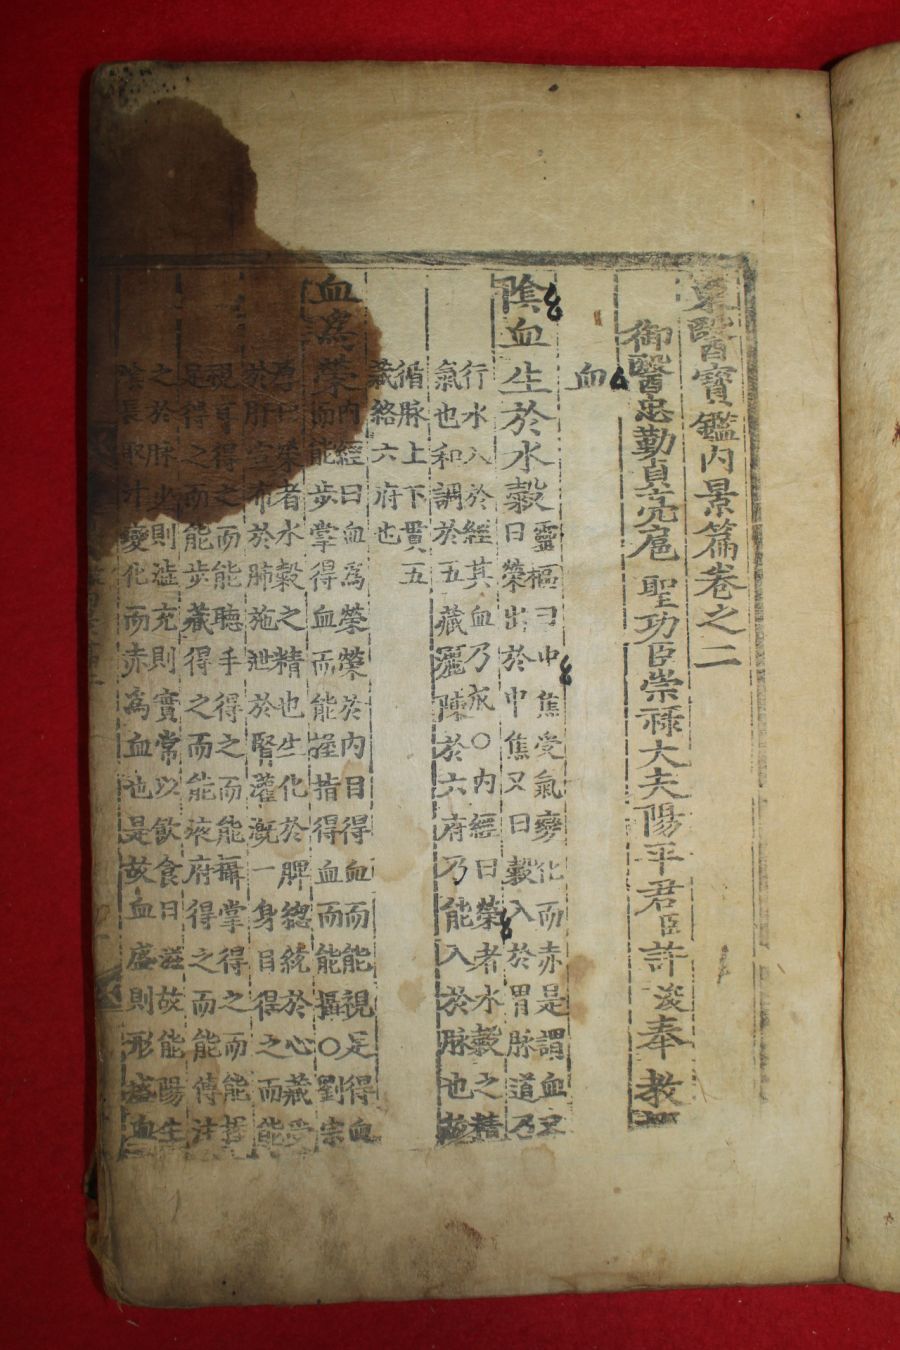 東醫寶鑑內景篇卷之二
御醫忠勤貞亮扈 聖功臣崇祿大夫陽平君臣許浚奉 教
血
陰血生於水穀
靈樞曰中焦受氣變化而赤是謂血又
曰榮出於中焦又曰穀入於胃脉道乃
行水入於經其血乃成○內經曰榮者水穀之精
氣也和調於五藏灑陳於六府乃能入於脉也故
循脉上下貫五
藏絡六府也
血爲榮
內經曰血爲榮榮於內目得血而能視足得血
而能步掌得血而能握指得血而能攝○劉宗
厚曰榮者水穀之精也生化於脾總統於心藏受
於肝宣布於肺施泄於腎灌漑一身目得之而能
視耳得之而能聽手得之而能攝掌得之而能握
足得之而能步藏得之而能液府得之而能傳注
之於脉少則澁充則實常以飮食日滋故能陽生
陰長取汁變化而赤爲血也是故血盛則形盛血